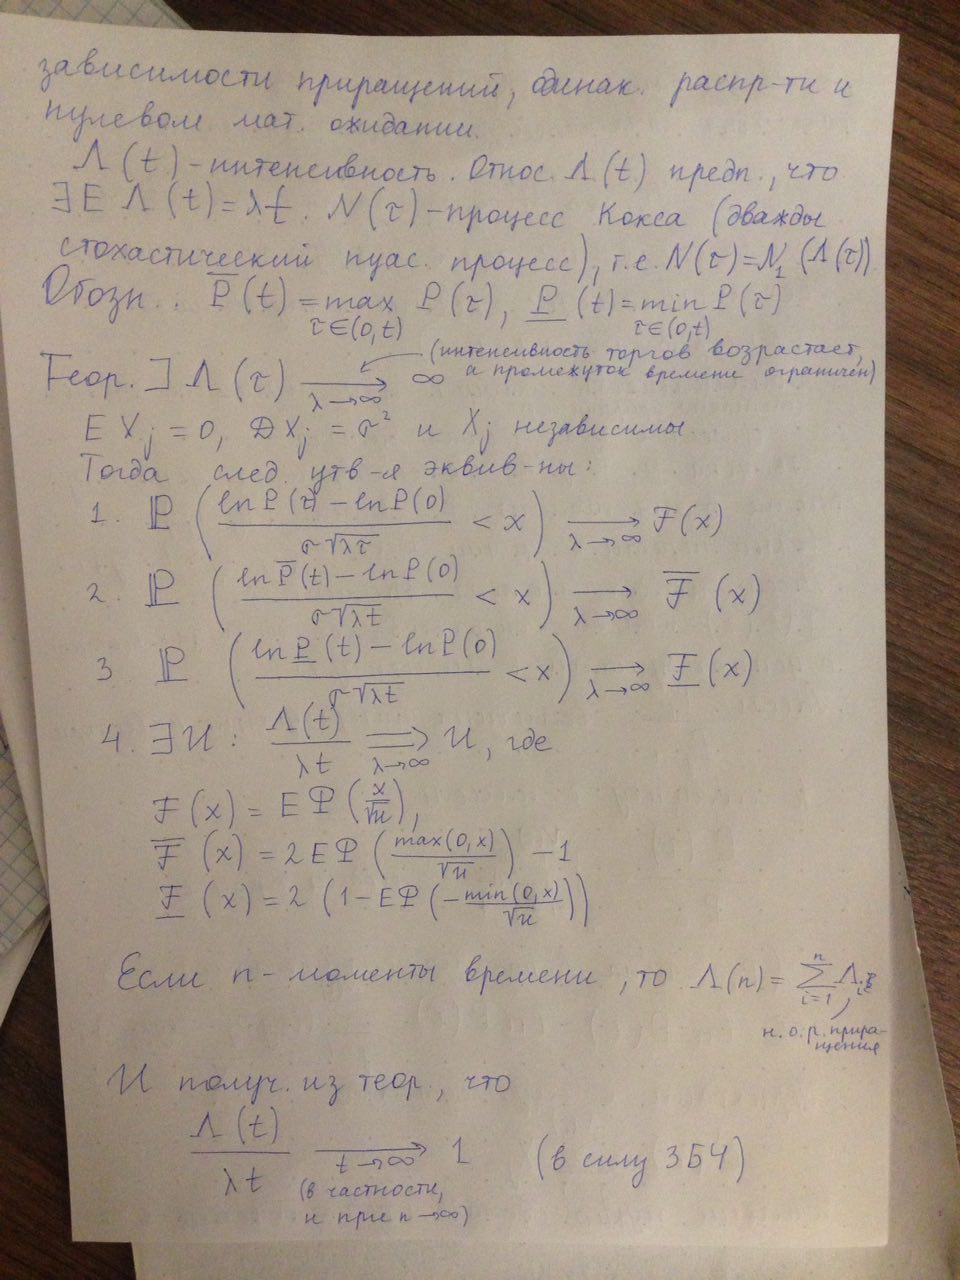 зависимости приращений, одинак. распр-ти и
нулевом мат. ожидании.
Λ(t) - интенсивность. Относ. Λ(t) предп., что
∃ E Λ(t) = λt. N(τ) - процесс Кокса (дважды
стохастический пуас. процесс), т.е. N(τ) = N₁(Λ(τ))
Обозн.: P̅(t) = max P(τ), P̲(t) = min P(τ)
τ∈(0,t) τ∈(0,t)
(интенсивность торгов возрастает,
а промежуток времени ограничен)
Теор. ∃ Λ(τ) ⟶ ∞
λ→∞
E Xⱼ = 0, D Xⱼ = σ² и Xⱼ независимы.
Тогда след. утв-я эквив-ны:
1. ℙ ( (ln P(τ) - ln P(0)) / (σ√λτ) < x ) ⟶ F(x)
λ→∞
2. ℙ ( (ln P̅(t) - ln P(0)) / (σ√λt) < x ) ⟶ F̅(x)
λ→∞
3 ℙ ( (ln P̲(t) - ln P(0)) / (σ√λt) < x ) ⟶ F̲(x)
λ→∞
4. ∃ U : Λ(t) / λt ⟹ U, где
λ→∞
F(x) = E Φ (x/√u),
F̅(x) = 2EΦ (max(0,x) / √u) - 1
F̲(x) = 2 (1 - EΦ (- min(0,x) / √u))
Если n - моменты времени, то Λ(n) = Σⁿᵢ₌₁ Λᵢ
н.о.р. прира-
щения
И получ. из теор., что
Λ(t) / λt ⟶ 1 (в силу ЗБЧ)
t→∞
(в частности,
и при n→∞)